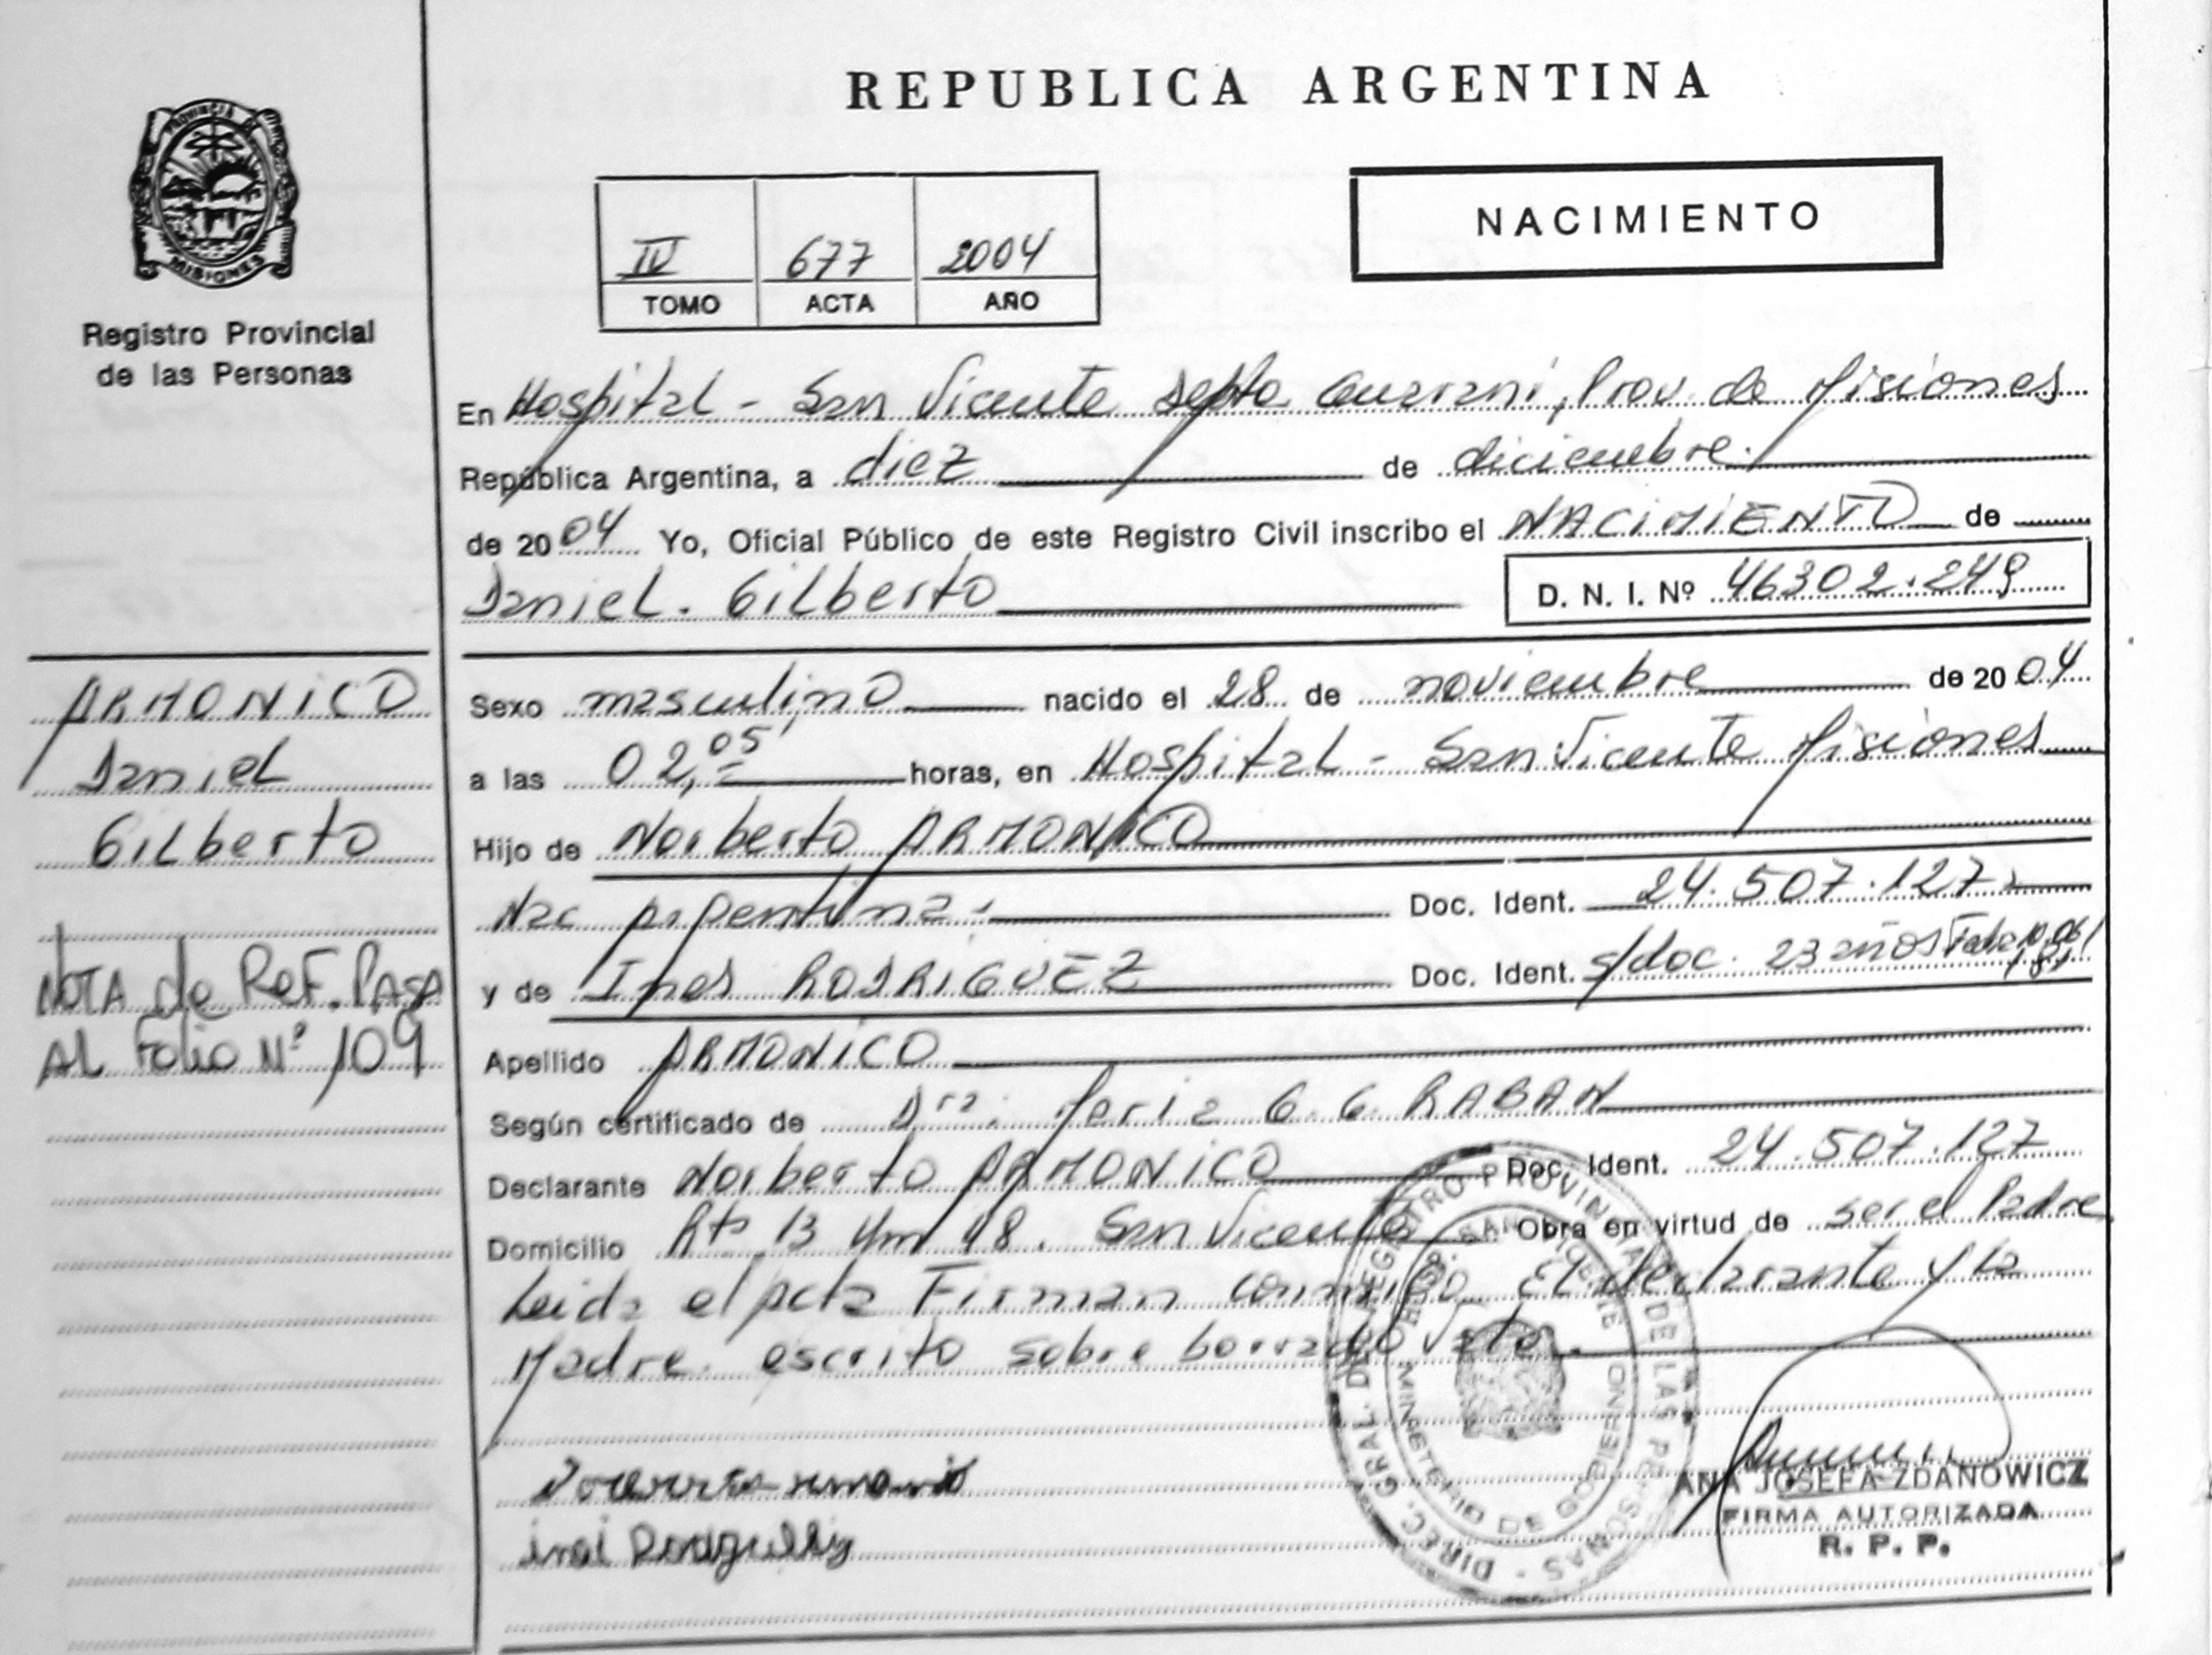 REPUBLICA ARGENTINA
PROVINCIA DE
MISIONES
Registro Provincial
de las Personas
IV 677 2004
TOMO ACTA AÑO
NACIMIENTO
En Hospital - San Vicente Depto Guarani, Prov. de Misiones
República Argentina, a diez de diciembre.
de 2004 Yo, Oficial Público de este Registro Civil inscribo el NACIMIENTO de
Daniel. Gilberto D. N. I. Nº 46302.249
ARMONICO
Daniel
Gilberto
NOTA de Ref. Pasa
AL Folio Nº 109
Sexo masculino nacido el 28 de noviembre de 2004
a las 02,05 horas, en Hospital - San Vicente Misiones
Hijo de Norberto ARMONICO
Nac Argentina. Doc. Ident. 24.507.127
y de Ines RODRIGUEZ Doc. Ident. s/doc. 23 años
Apellido ARMONICO
Según certificado de Dra. Maria G. G. RABAN
Declarante Norberto ARMONICO Doc. Ident. 24.507.127
Domicilio Rta 13 Km 48. San Vicente Obra en virtud de ser el Padre
Leida el Acta Firman conmigo El declarante y la
Madre. escrito sobre borrado Vale.
DIREC. GRAL. DEL REGISTRO PROVINCIAL DE LAS PERSONAS
SAN VICENTE
MINISTERIO DE GOBIERNO
ANA JOSEFA ZDANOWICZ
FIRMA AUTORIZADA
R. P. P.